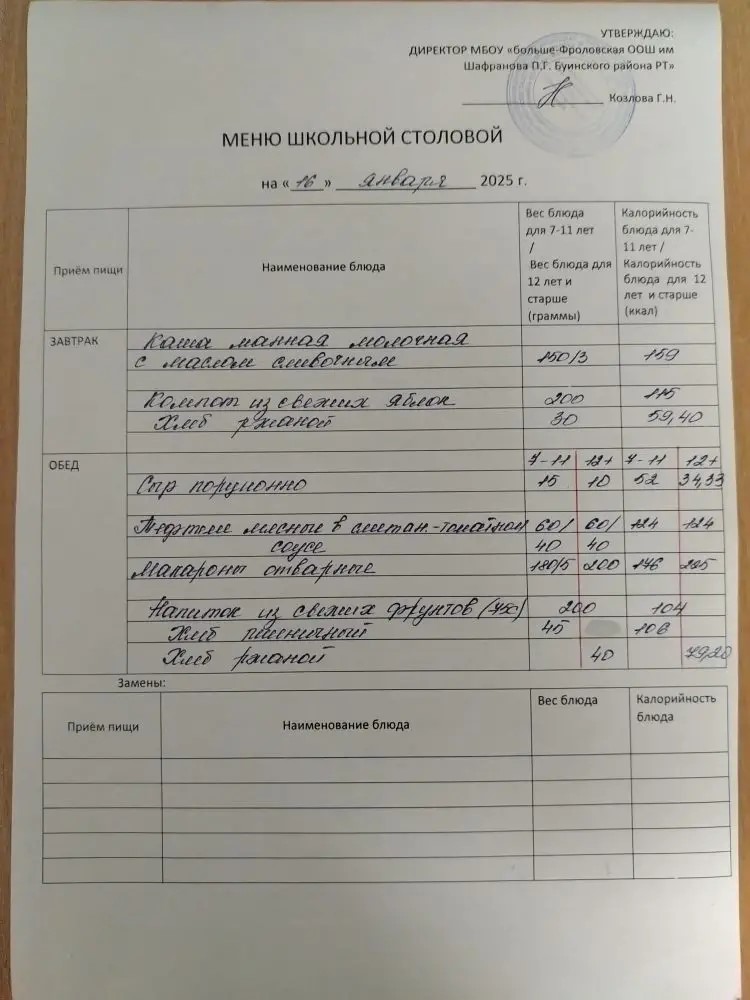 УТВЕРЖДАЮ:
ДИРЕКТОР МБОУ «больше-Фроловская ООШ им
Шафранова П.Г. Буинского района РТ»
Козлова Г.Н.
МЕНЮ ШКОЛЬНОЙ СТОЛОВОЙ
на « 16 » января 2025 г.
Приём пищи
Наименование блюда
Вес блюда
для 7-11 лет
/
Вес блюда для
12 лет и
старше
(граммы)
Калорийность
блюда для 7-
11 лет /
Калорийность
блюда для 12
лет и старше
(ккал)
ЗАВТРАК
Каша манная молочная
с маслом сливочным 150/3 159
Компот из свежих яблок 200 115
Хлеб ржаной 30 59,40
ОБЕД
7-11 12+ 7-11 12+
Сыр порционно 15 10 52 34,33
Тефтели мясные в сметан.-томатном 60/ 60/ 124 124
соусе 40 40
Макароны отварные 180/5 200 176
Напиток из свежих фрунтов 200 104
Хлеб пшеничный 45 106
Хлеб ржаной 40 79,20
Замены:
Приём пищи
Наименование блюда
Вес блюда
Калорийность
блюда